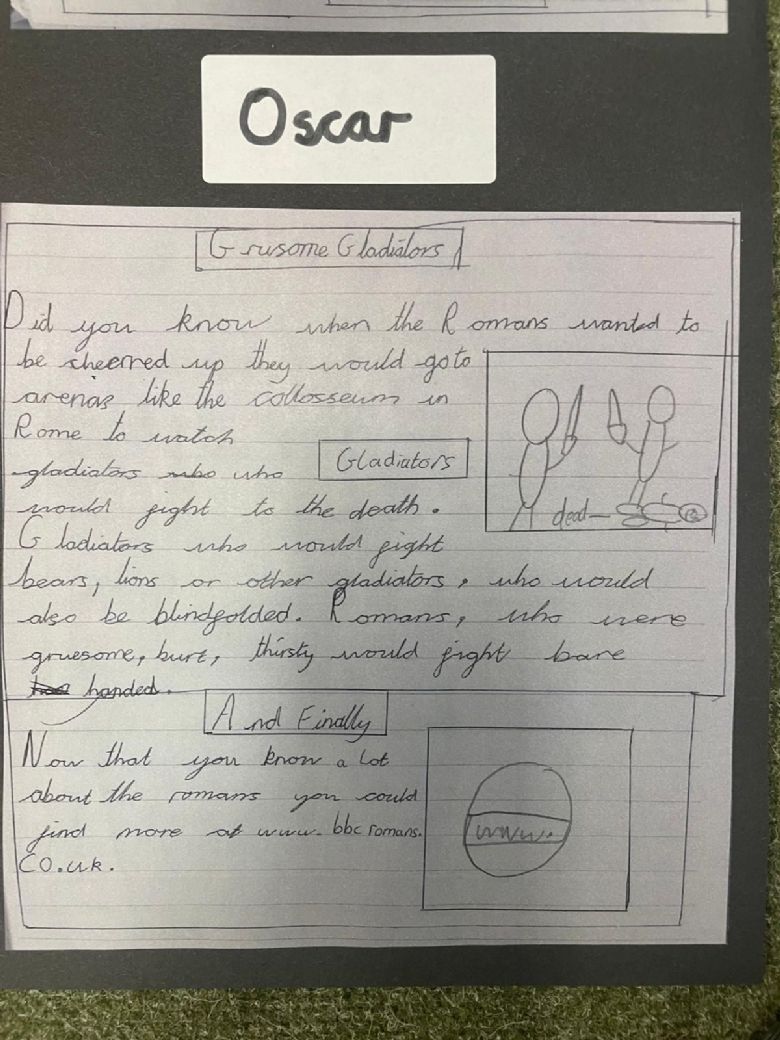 Oscar
Grusome Gladiators
Did you know when the Romans wanted to
be cheerred up they would go to
arenas like the collosseum in
Rome to watch
gladiators who who
Gladiators
would fight to the death.
dead
Gladiators who would fight
bears, lions or other gladiators, who would
also be blindfolded. Romans, who were
gruesome, burt, thirsty would fight bare
handed.
And Finally
Now that you know a lot
about the romans you could
find more at www.bbc romans.
co.uk.
www.